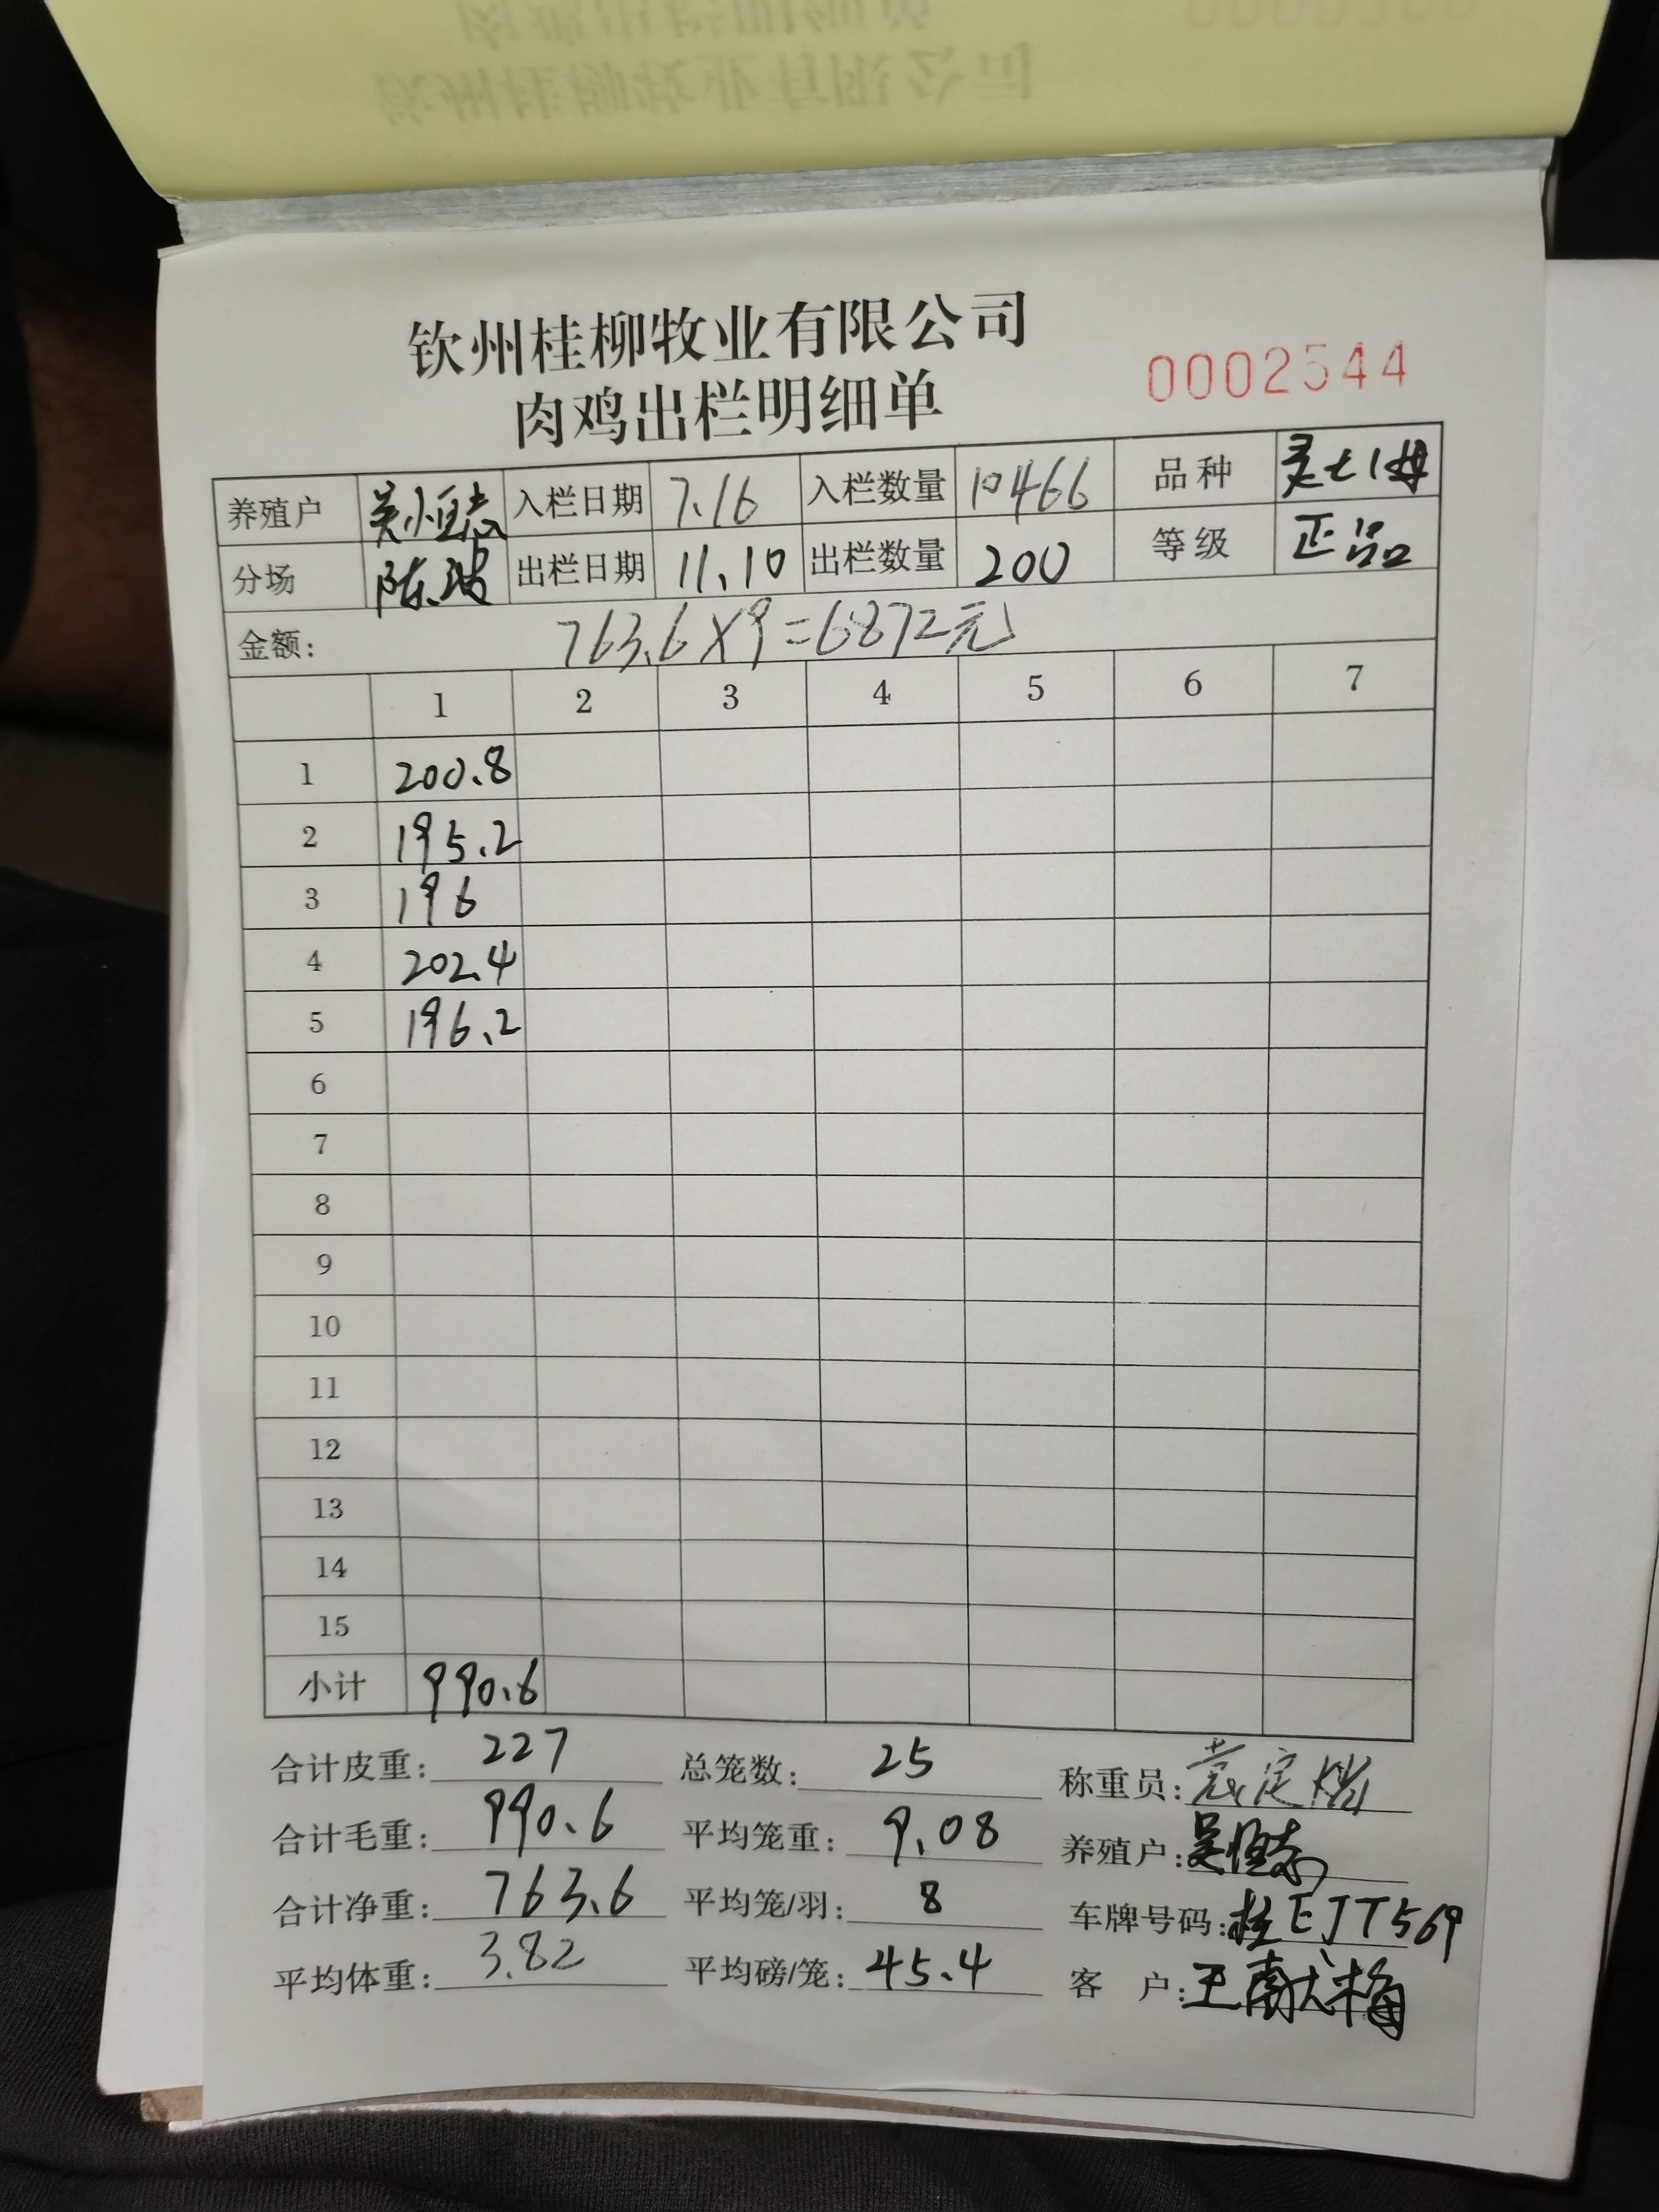 钦州桂柳牧业有限公司
肉鸡出栏明细单
0002544
养殖户 吴恒志 入栏日期 7.16 入栏数量 10466 品种 灵七1母
分场 陈波 出栏日期 11.10 出栏数量 200 等级 正品
金额: 763.6×9=6872元
1 2 3 4 5 6 7
1 200.8
2 195.2
3 196
4 202.4
5 196.2
6
7
8
9
10
11
12
13
14
15
小计 990.6
合计皮重: 227 总笼数: 25 称重员:
合计毛重: 990.6 平均笼重: 9.08 养殖户: 吴恒志
合计净重: 763.6 平均笼/羽: 8 车牌号码: 桂EJT569
平均体重: 3.82 平均磅/笼: 45.4 客 户: 王献梅